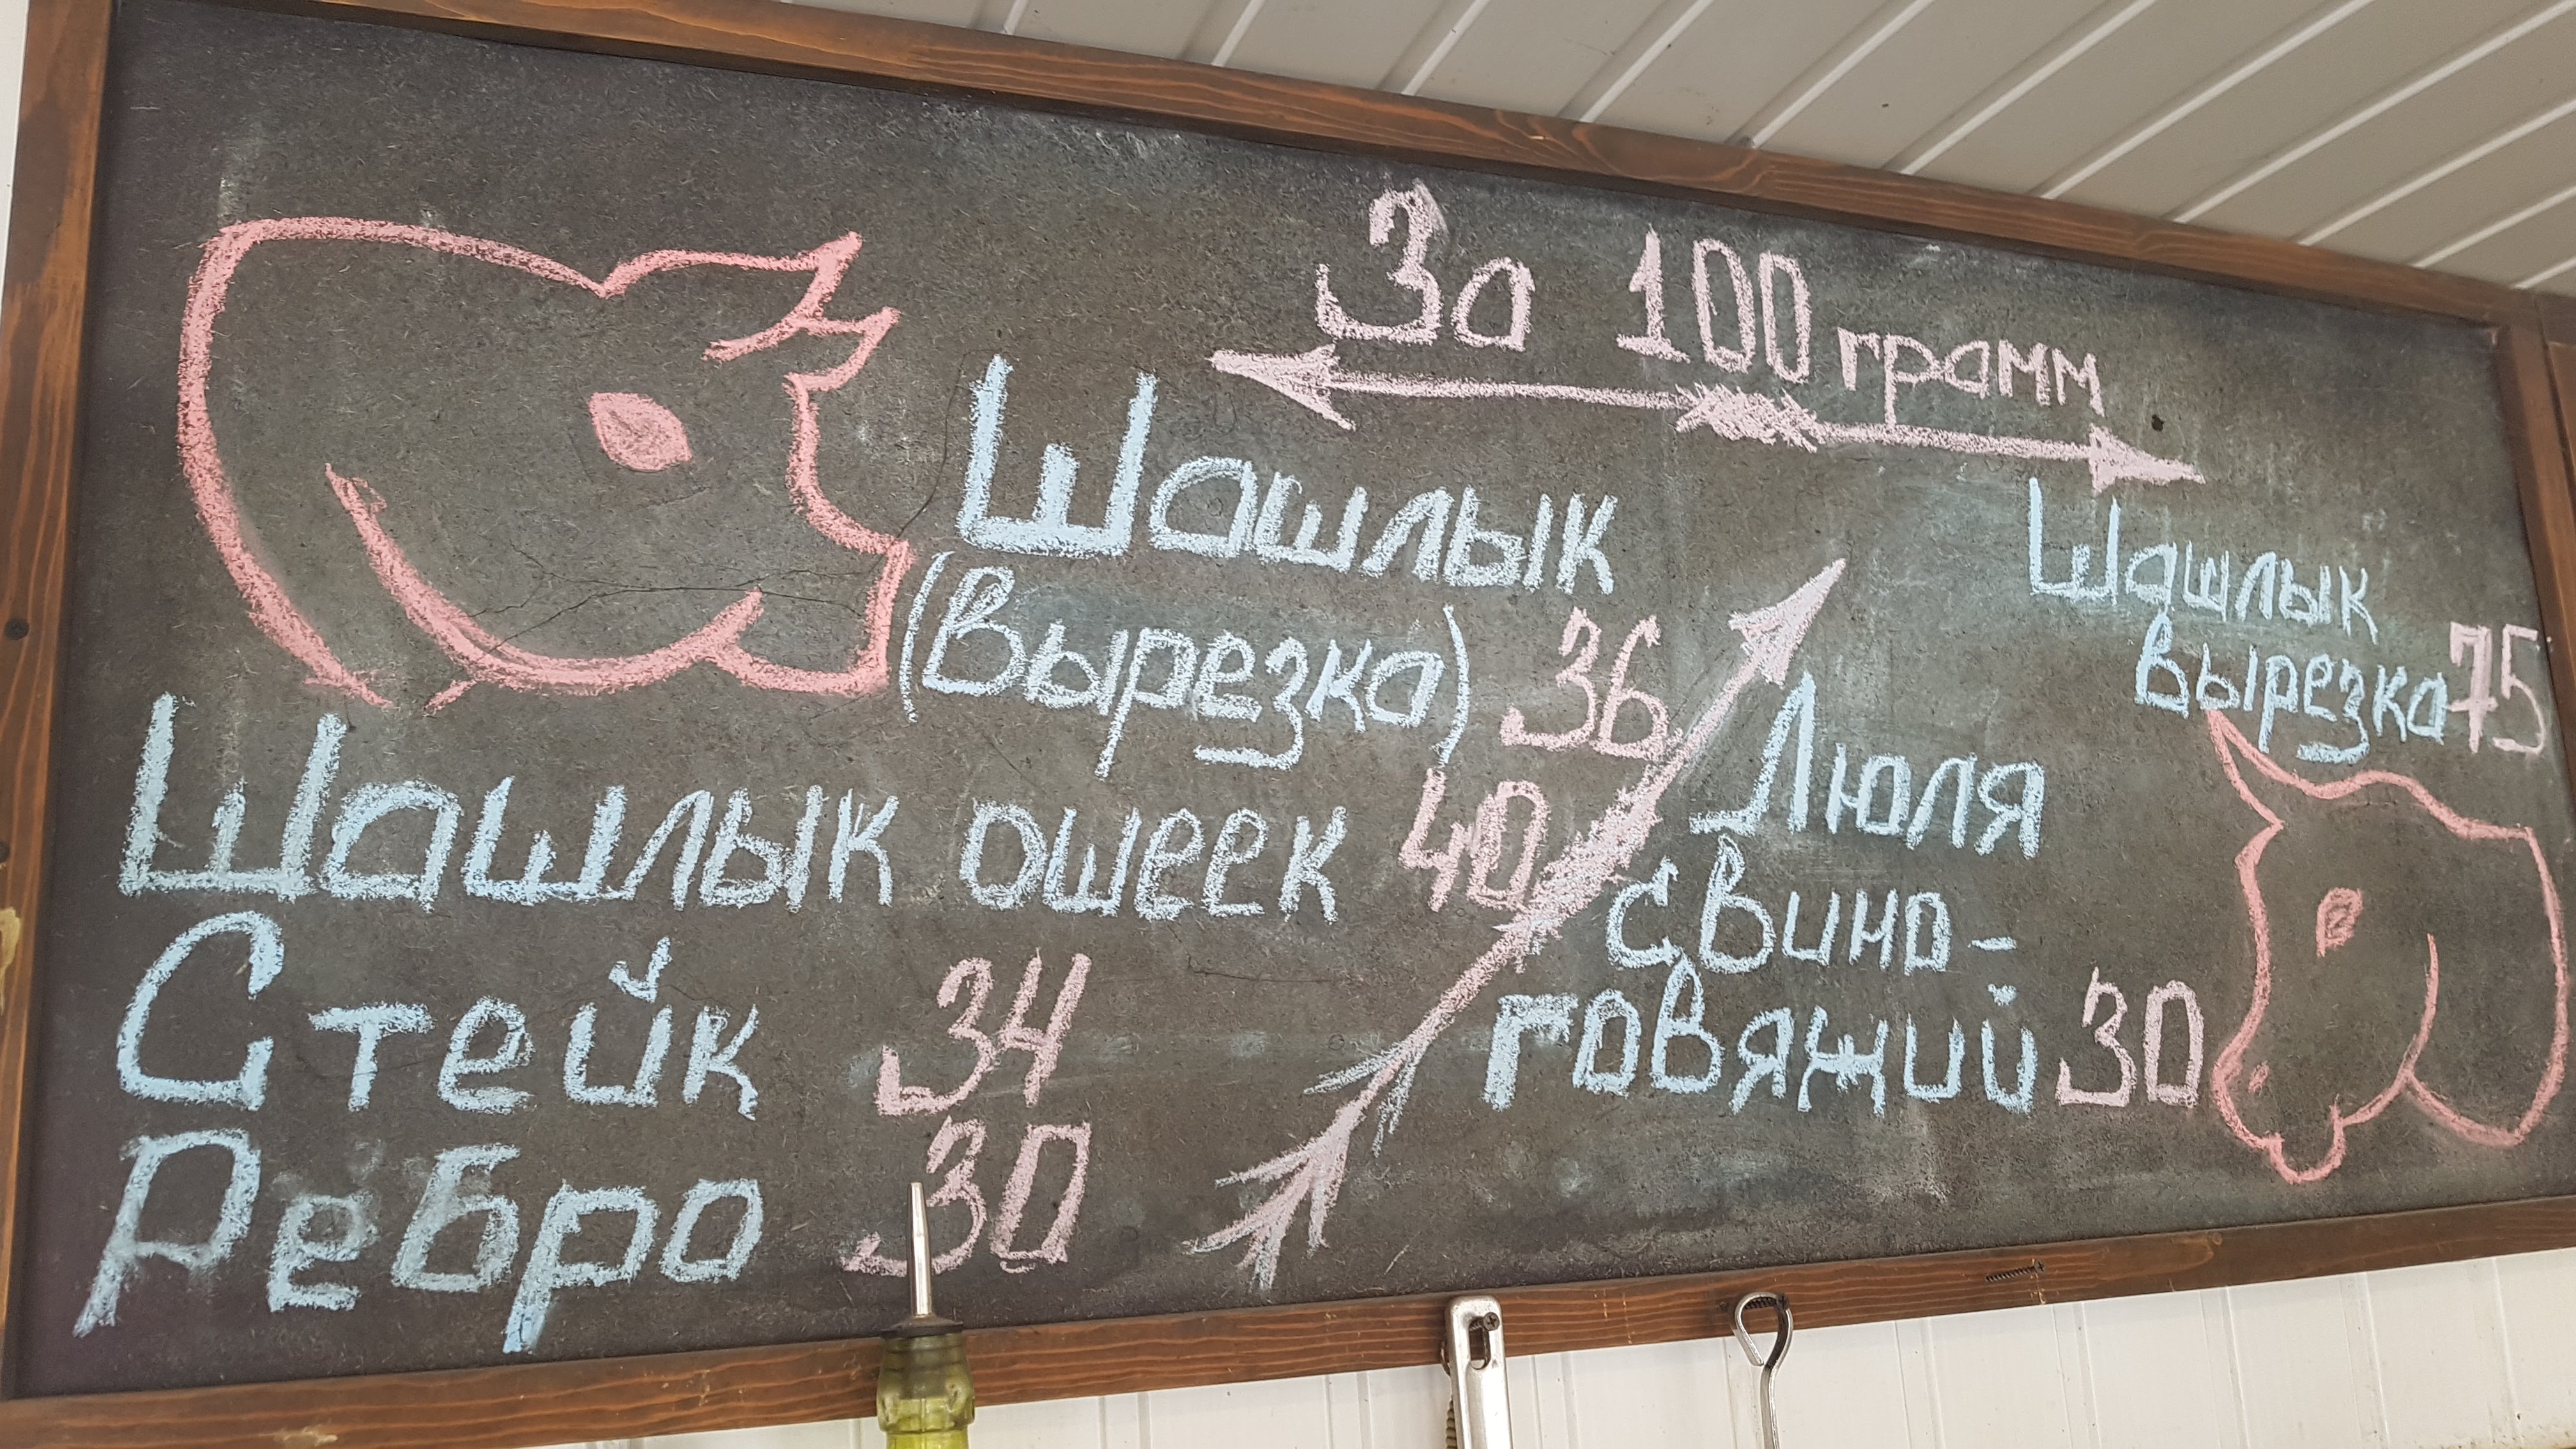 За 100 грамм
Шашлык
(вырезка) 36
Шашлык ошеек 40
Стейк 34
Ребро 30
Шашлык
вырезка 75
Люля
свино-
говяжий 30